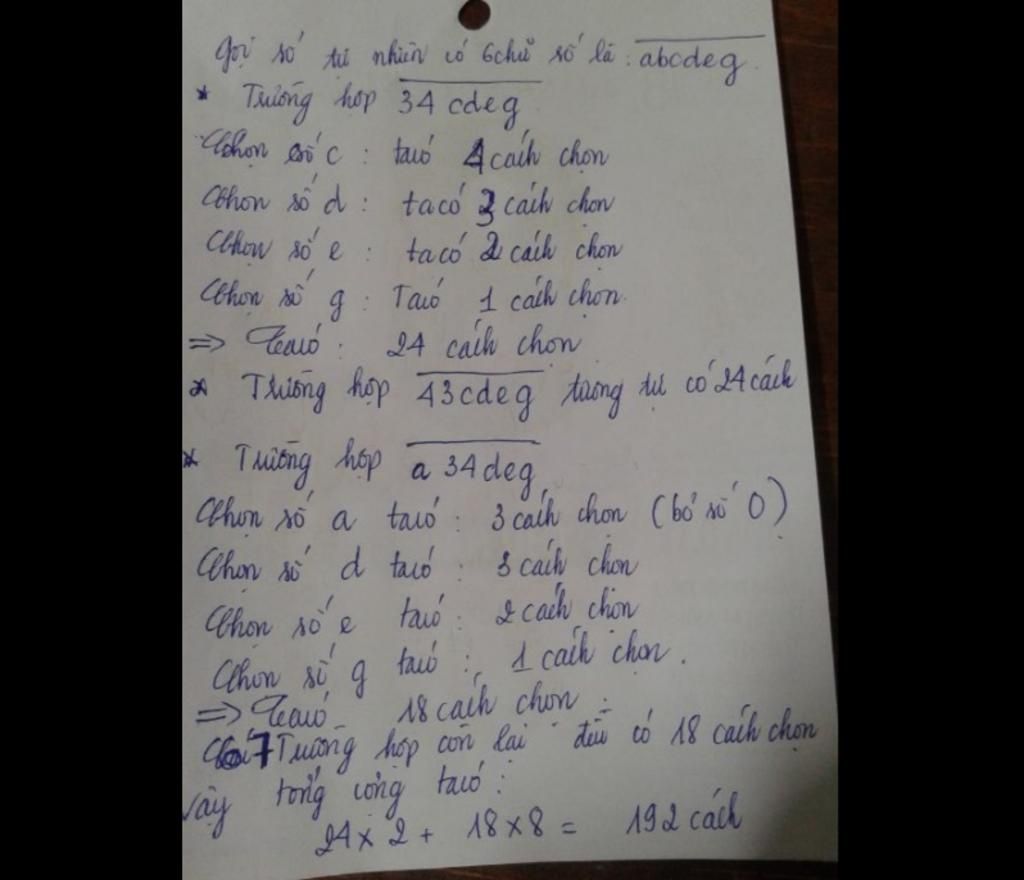 Gọi số tự nhiên có 6 chữ số là : abcdeg
* Trường hợp 34 cdeg
Chọn số c : ta có 4 cách chọn
Chọn số d : ta có 3 cách chọn
Chọn số e : ta có 2 cách chọn
Chọn số g : Ta có 1 cách chọn.
=> Ta có : 24 cách chọn
* Trường hợp 43cdeg tương tự có 24 cách
* Trường hợp a 34deg
Chọn số a ta có : 3 cách chọn (bỏ số 0)
Chọn số d ta có : 3 cách chọn
Chọn số e ta có : 2 cách chọn
Chọn số g ta có : 1 cách chọn.
=> Ta có 18 cách chọn :
7 Trường hợp còn lại đều có 18 cách chọn
Vậy tổng cộng ta có :
24 x 2 + 18 x 8 = 192 cách